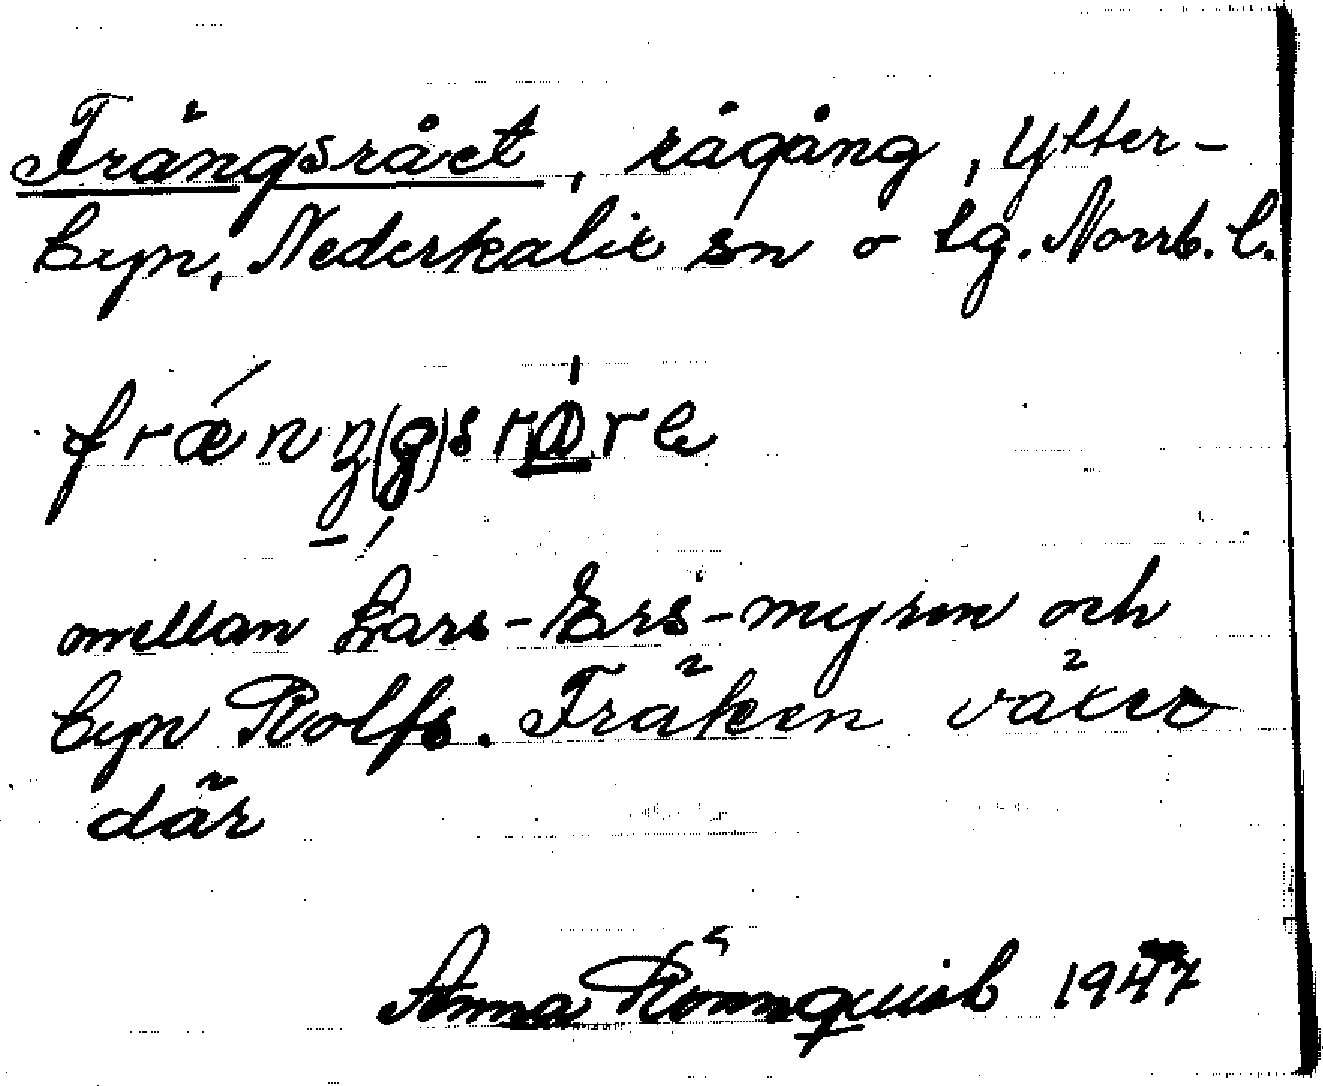 Frängsrået, rågång, Ytter-
byn, Nederkalix sn o tg. Norrb. l.
mellan Lars-Ers-myren och
byn Rolfs. Fräken växer
där
Anna Rönnqvist 1947